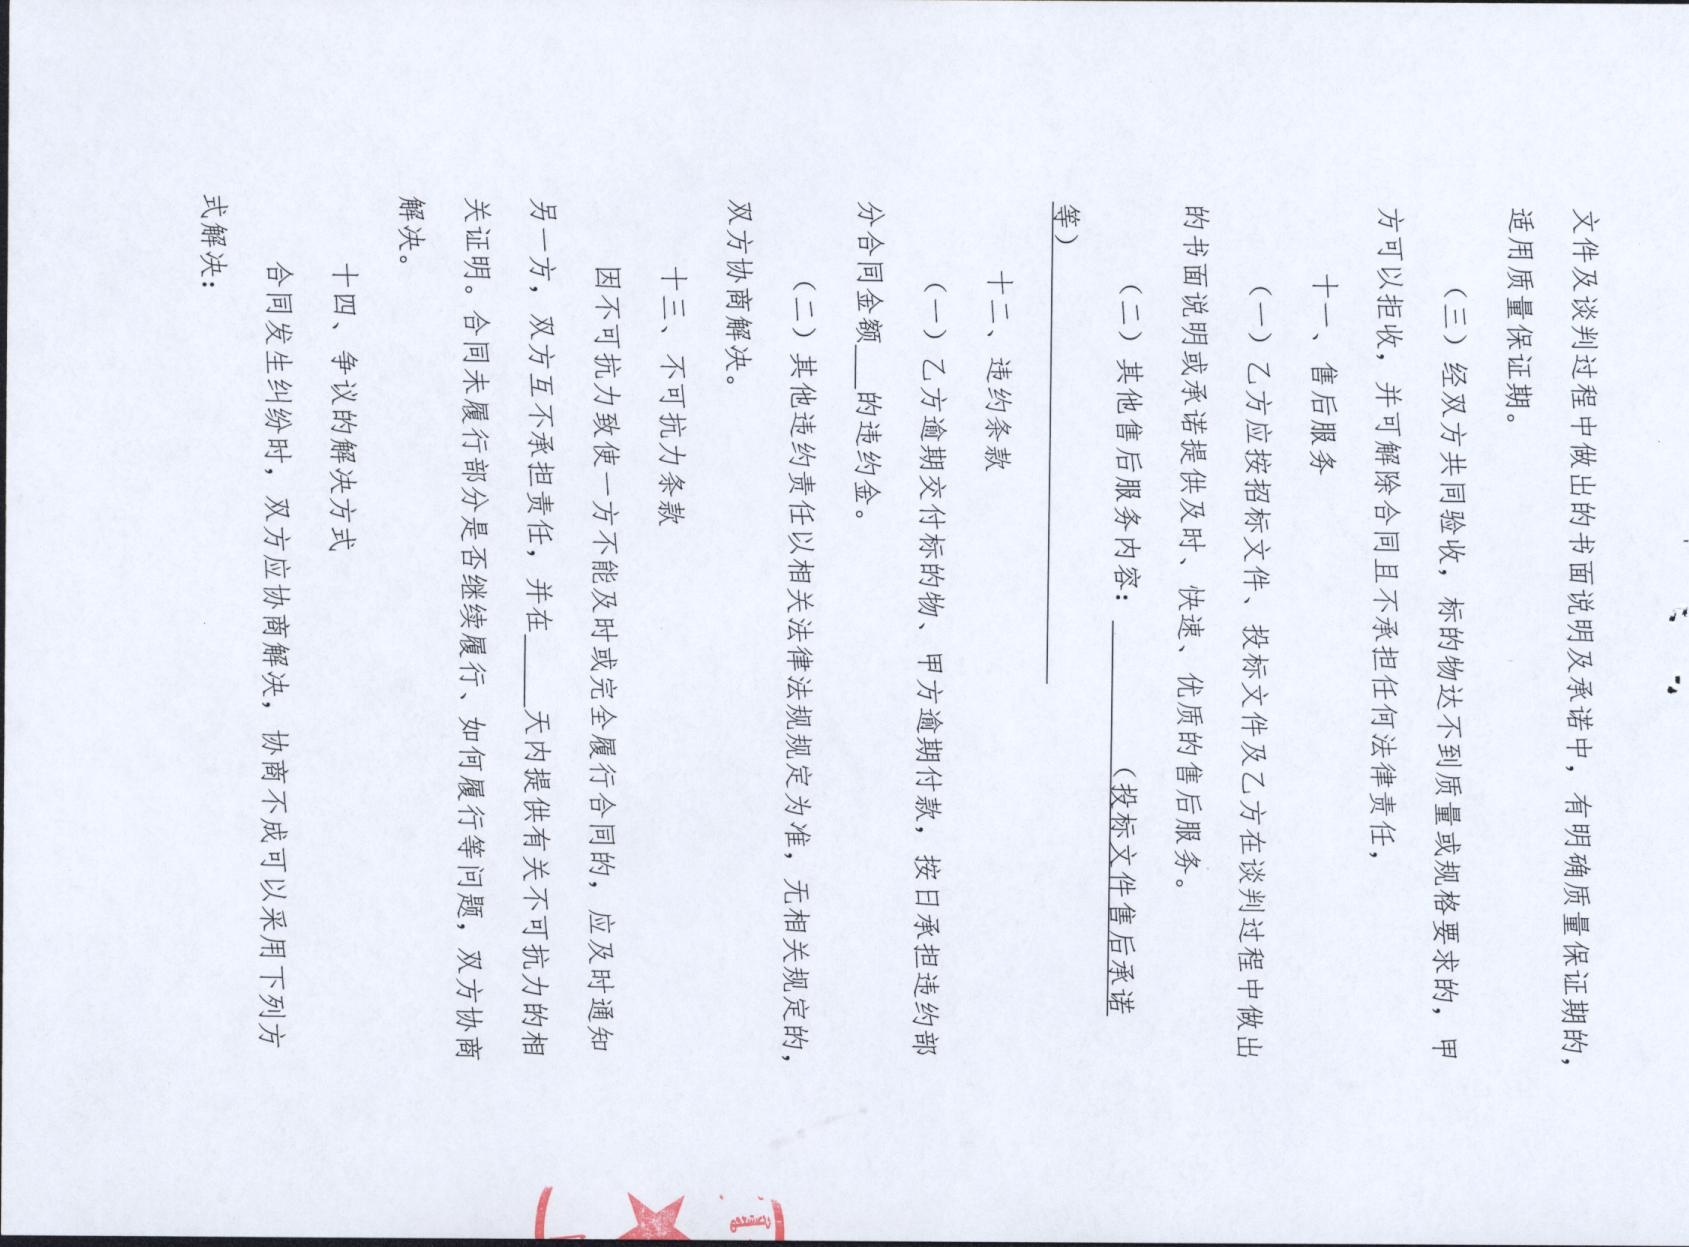 文件及谈判过程中做出的书面说明及承诺中，有明确质量保证期的，
适用质量保证期。
（三）经双方共同验收，标的物达不到质量或规格要求的，甲
方可以拒收，并可解除合同且不承担任何法律责任，
十一、售后服务
（一）乙方应按招标文件、投标文件及乙方在谈判过程中做出
的书面说明或承诺提供及时、快速、优质的售后服务。
（二）其他售后服务内容：____（投标文件售后承诺
等）
十二、违约条款
（一）乙方逾期交付标的物、甲方逾期付款，按日承担违约部
分合同金额__的违约金。
（二）其他违约责任以相关法律法规规定为准，无相关规定的，
双方协商解决。
十三、不可抗力条款
因不可抗力致使一方不能及时或完全履行合同的，应及时通知
另一方，双方互不承担责任，并在____天内提供有关不可抗力的相
关证明。合同未履行部分是否继续履行、如何履行等问题，双方协商
解决。
十四、争议的解决方式
合同发生纠纷时，双方应协商解决，协商不成可以采用下列方
式解决：